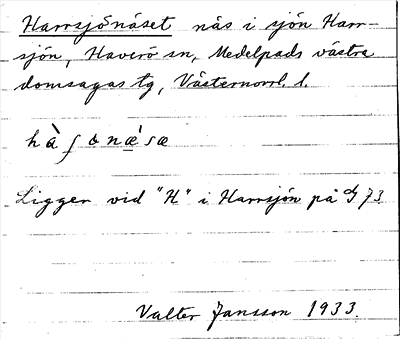 Harrsjönäset näs i sjön Harr-
sjön, Haverö sn, Medelpads västra
domsagas tg, Västernorrl. l.
hàʃɵnæ̀sæ
Ligger vid "H" i Harrsjön på G 73
Valter Jansson 1933.